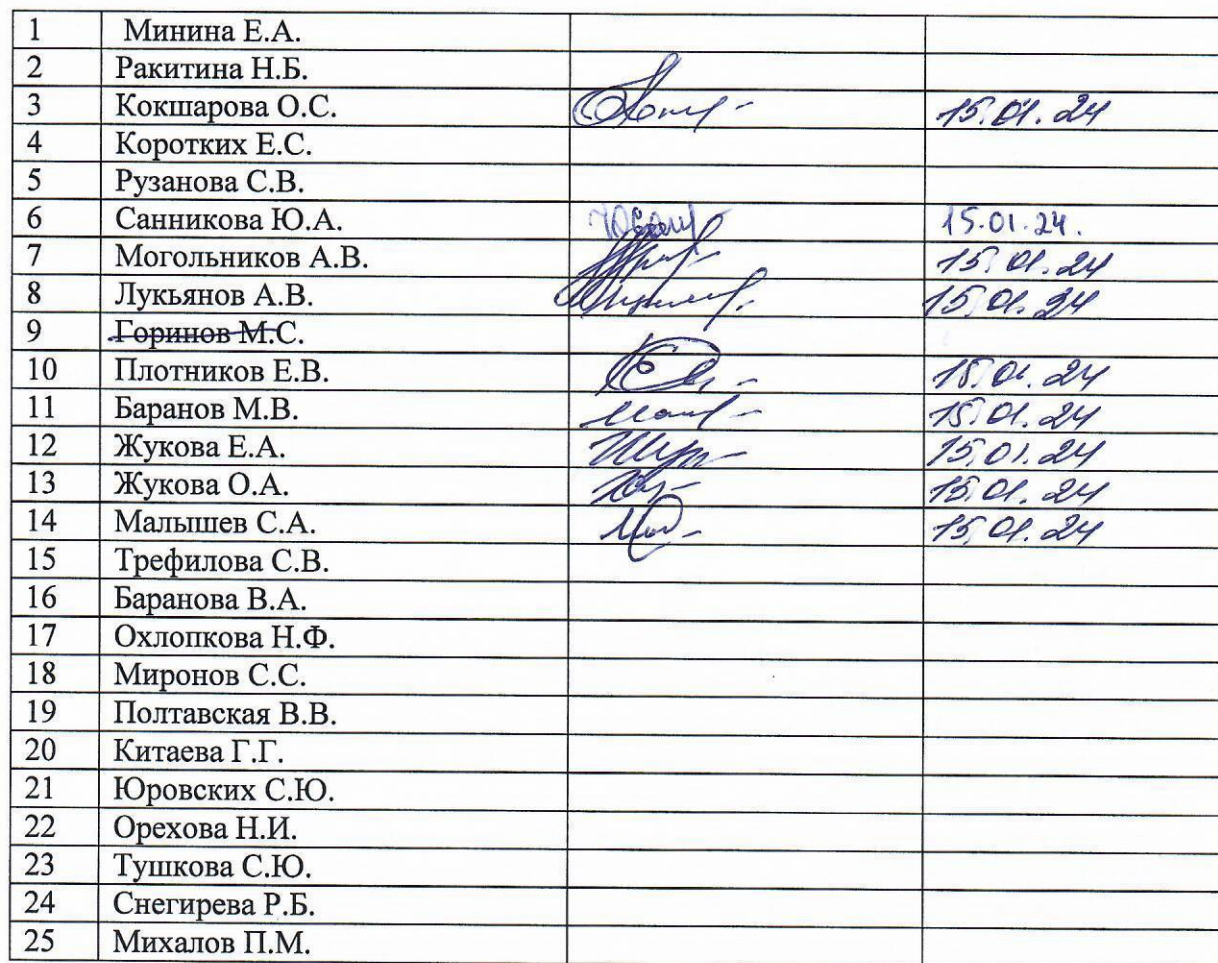 1 Минина Е.А.
2 Ракитина Н.Б.
3 Кокшарова О.С. 15.01.24
4 Коротких Е.С.
5 Рузанова С.В.
6 Санникова Ю.А. 15.01.24.
7 Могольников А.В. 15.01.24
8 Лукьянов А.В. 15.01.24
9 Горинов М.С.
10 Плотников Е.В. 15.01.24
11 Баранов М.В. 15.01.24
12 Жукова Е.А. 15.01.24
13 Жукова О.А. 15.01.24
14 Малышев С.А. 15.01.24
15 Трефилова С.В.
16 Баранова В.А.
17 Охлопкова Н.Ф.
18 Миронов С.С.
19 Полтавская В.В.
20 Китаева Г.Г.
21 Юровских С.Ю.
22 Орехова Н.И.
23 Тушкова С.Ю.
24 Снегирева Р.Б.
25 Михалов П.М.